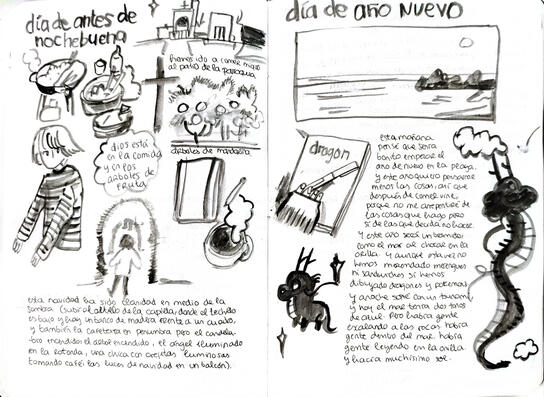 día de antes de
nochebuena
hemos ido a comer migas
al patio de la parroquia
dios está
en la comida
y en los
árboles de
fruta
árboles de mandarina
esta navidad ha sido claridad en medio de la
sombra (subir al altillo de la capilla, donde el techillo
es bajo y hay un banco de madera frente a un cuadro,
y también la cafetera en penumbra pero el candela-
bro encendido, el árbol encendido, el ángel iluminado
en la rotonda, una chica con orejitas luminosas
tomando café, las luces de navidad en un balcón).
día de año nuevo
dragon
esta mañana
pensé que sería
bonito empezar el
año de nuevo en la playa.
y este año quiero pensarme
menos las cosas, así que
después de comer vine
porque no me arrepentiré de
las cosas que hago pero
sí de las que decida no hacer.
y este año será un bramido
como el mar al chocar en la
orilla. y aunque esta vez no
hemos merendado merengues
ni sandwiches sí hemos
dibujado dragones y poemas
y anoche soñé con un tsunami,
y hoy el mar tenía dos tonos
de azul. Pero había gente
escalando a las rocas había
gente dentro del mar había
gente leyendo en la orilla
y hacía muchísimo sol.